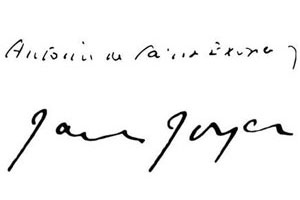 Antoine de Saint Exupéry
James Joyce